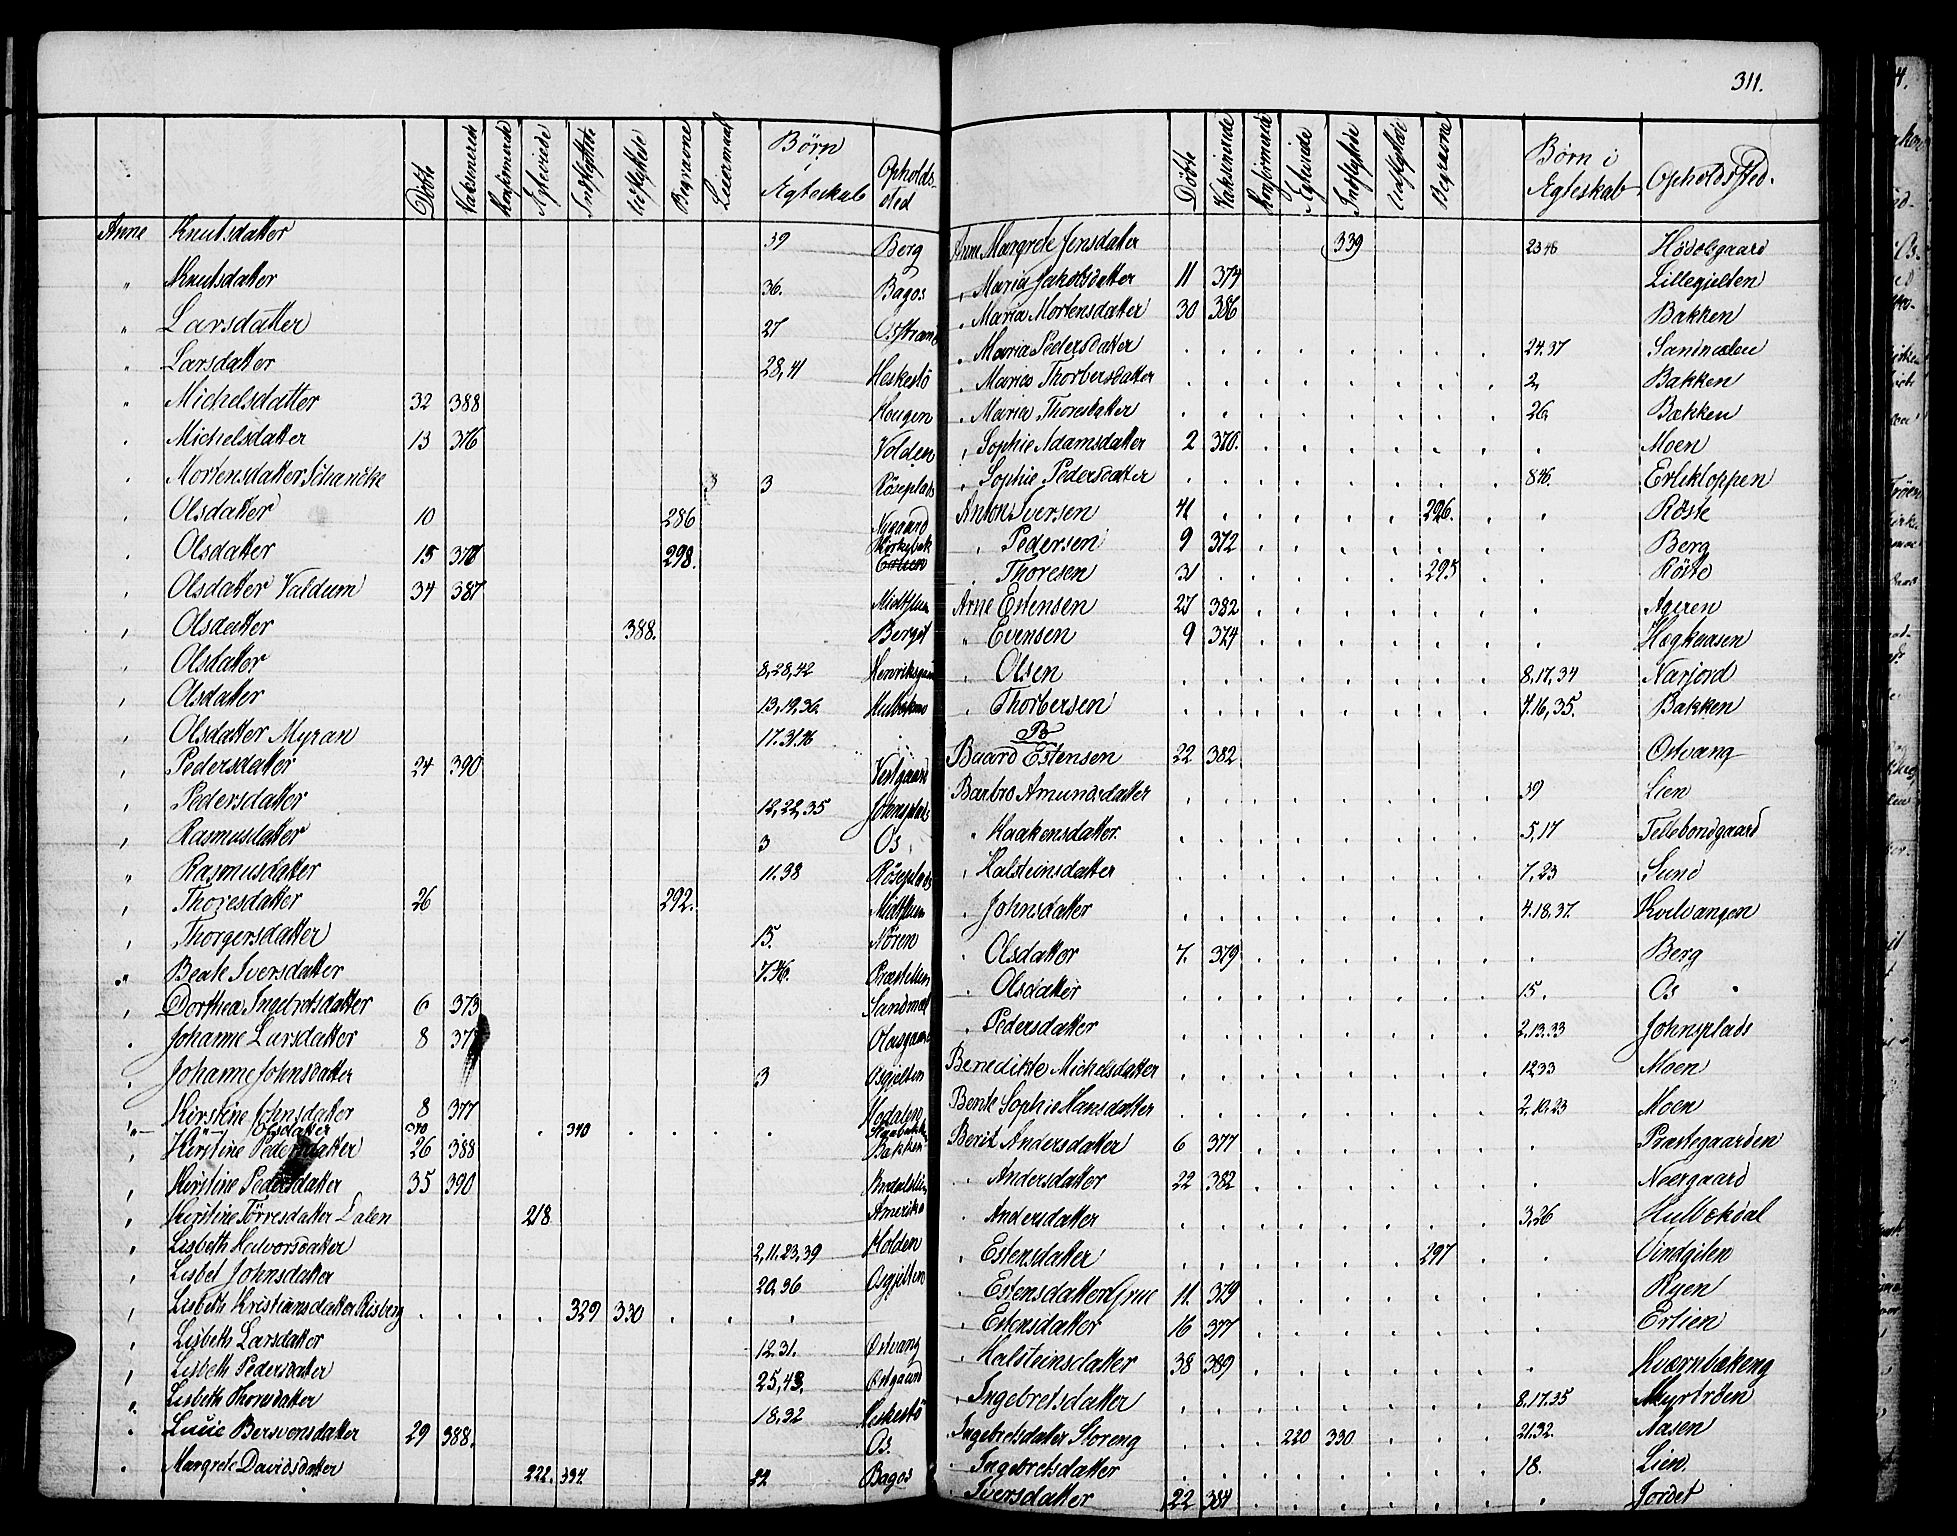 311.
Döbte Vaksinerede Konfirmerede Egteviede Indflyttede Udflyttede Begravne Leiermaal Børn Ægteskab Opholds-sted
Anne Knutsdatter 39 Berg
" Knutsdatter 36. Bagos
" Larsdatter 27
" Larsdatter 28,41 Heskestö
" Michelsdatter 32 388 Hougen
" Michelsdatter 13 376 Volden
" Mortensdatter Schancke 3 3 Röseplads
" Olsdatter 10 286 Nygaard
" Olsdatter 15 298.
" Olsdatter Valdum 34 387 Midtflun
" Olsdatter 388. Berget
" Olsdatter 8,28,42
" Olsdatter 13,19,36.
" Olsdatter Myran
" Pedersdatter 24 390 Vestgaard
" Pedersdatter 12,22,35 Johnsplads
" Rasmusdatter 3 Os
" Rasmusdatter 11.38 Röseplads
" Thoresdatter 26 292. Midtflun
" Thorgersdatter 15. Nören
" Beate Iversdatter
" Dorthea Ingebretsdatter 6 373
" Johanne Larsdatter 8
" Johanne Johnsdatter 3 Osgjelten
" Kirstine Johnsdatter 8 377 Modalen
" Olsdatter 340 340
" Kirstine Pedersdatter 26 388 Bakken
" Kirstine Pedersdatter 35 390
" Kirstine Törresdatter Lalen 218 Amerika
" Lisbeth Halvorsdatter 2,11.23,39 Holden
" Lisbet Johnsdatter 20,36 Osgjelten
" Lisbeth Kristiansdatter Risberg 329 330
" Lisbeth Larsdatter 12.31. Østvang
" Lisbeth Pedersdatter 25,43. Østgaard
" Lisbeth Thorsdatter 18,32 Heskestö
" Lucie Bersvensdatter 29 388. Os.
" Margrete Davidsdatter 222. 334. Bagos
Döbte Vaksinerede Konfirmerede Egteviede Indflyttede Udflyttede Begravne Børn i Ægteskab Opholdssted.
Anne Margrete Jensdatter 339
" Maria Jakobsdatter 11 374 Lillegjelten
" Maria Mortensdatter 30 386 Bakken
" Maria Pedersdatter 24.37 Sandmælen
" Maria Thorbersdatter 2, Bakken
" Maria Thoresdatter 26 Bækken
" Sophie Adamsdatter 2 370. Moen
" Sophie Pedersdatter Erlikloppen
Anton Iversen 41 296. Röste
" Pedersen 9 372 Berg
" Thoresen 31 295 Röste
Arne Estensen 27 382 Ageren
" Evensen 9 374
" Olsen 8,17,34 Narjord
" Thorbersen 7.16,35. Bakken
B
Baard Estensen 22 382 Ostvang
Barbro Amundsdatter 39 Lien
" Haakensdatter 5,17 Tellebondgaard
" Halsteinsdatter 7,23 Sund
" Johnsdatter 4.18.37. Kvilvangen
" Olsdatter 7. 379 Berg
" Olsdatter 15. Os
" Pedersdatter 2.13.33 Johnsplads
Benedikte Michelsdatter 1233 Moen
Bente Sophie Hansdatter 2.10.23 Moen
Berit Andersdatter 6 377 Præstegaarden
" Andersdatter 22 382 Neergaard
" Andersdatter 3,26 Hulbækdal
" Estensdatter 297 Vindgilen
" Estensdatter 11. 379 Ryen
" Estensdatter 16 377 Erlien
" Halsteinsdatter 38 389 Kværnbækeng
" Ingebretsdatter 8.17.35 Myrtröen
Ingebretsdatter Storeng 220 330 21.32. Aasen
" Ingebretsdatter 18. Lien.
" Iversdatter 22 384 Jordet